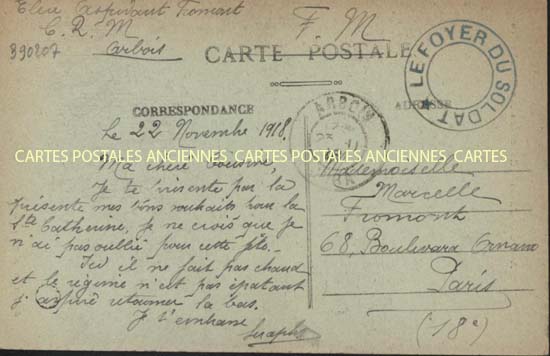 Elève Aspirant Fromont
C. R. M
Arbois
390207
F. M
CARTE POSTALE
LE FOYER DU SOLDAT
CORRESPONDANCE
ADRESSE
ARBOIS
Le 22 Novembre 1918,
CARTES POSTALES ANCIENNES CARTES POSTALES ANCIENNES CARTES
Ma chère
Je te présente par la
présente mes bons souhaits pour la
Ste Catherine, je ne crois que je
n'ai pas oublié pour cette fête.
Ici il ne fait pas chaud
et le régime n'est pas épatant
j'aspire retourner la bas.
Je t'embrasse
Mademoiselle
Marcelle
Fromont
68, Boulevard Ornano
Paris
(18e)